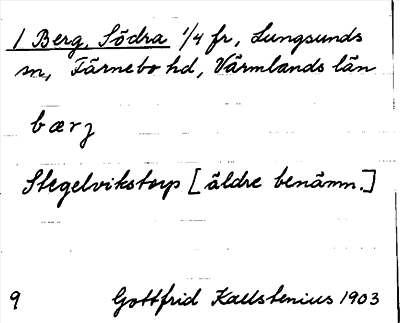 1 Berg, Södra 1/4 fr, Lungsunds
sn, Färnebo hd, Värmlands län
bærj
Stegelvikstorp [äldre benämn.]
9 Gottfrid Kallstenius 1903